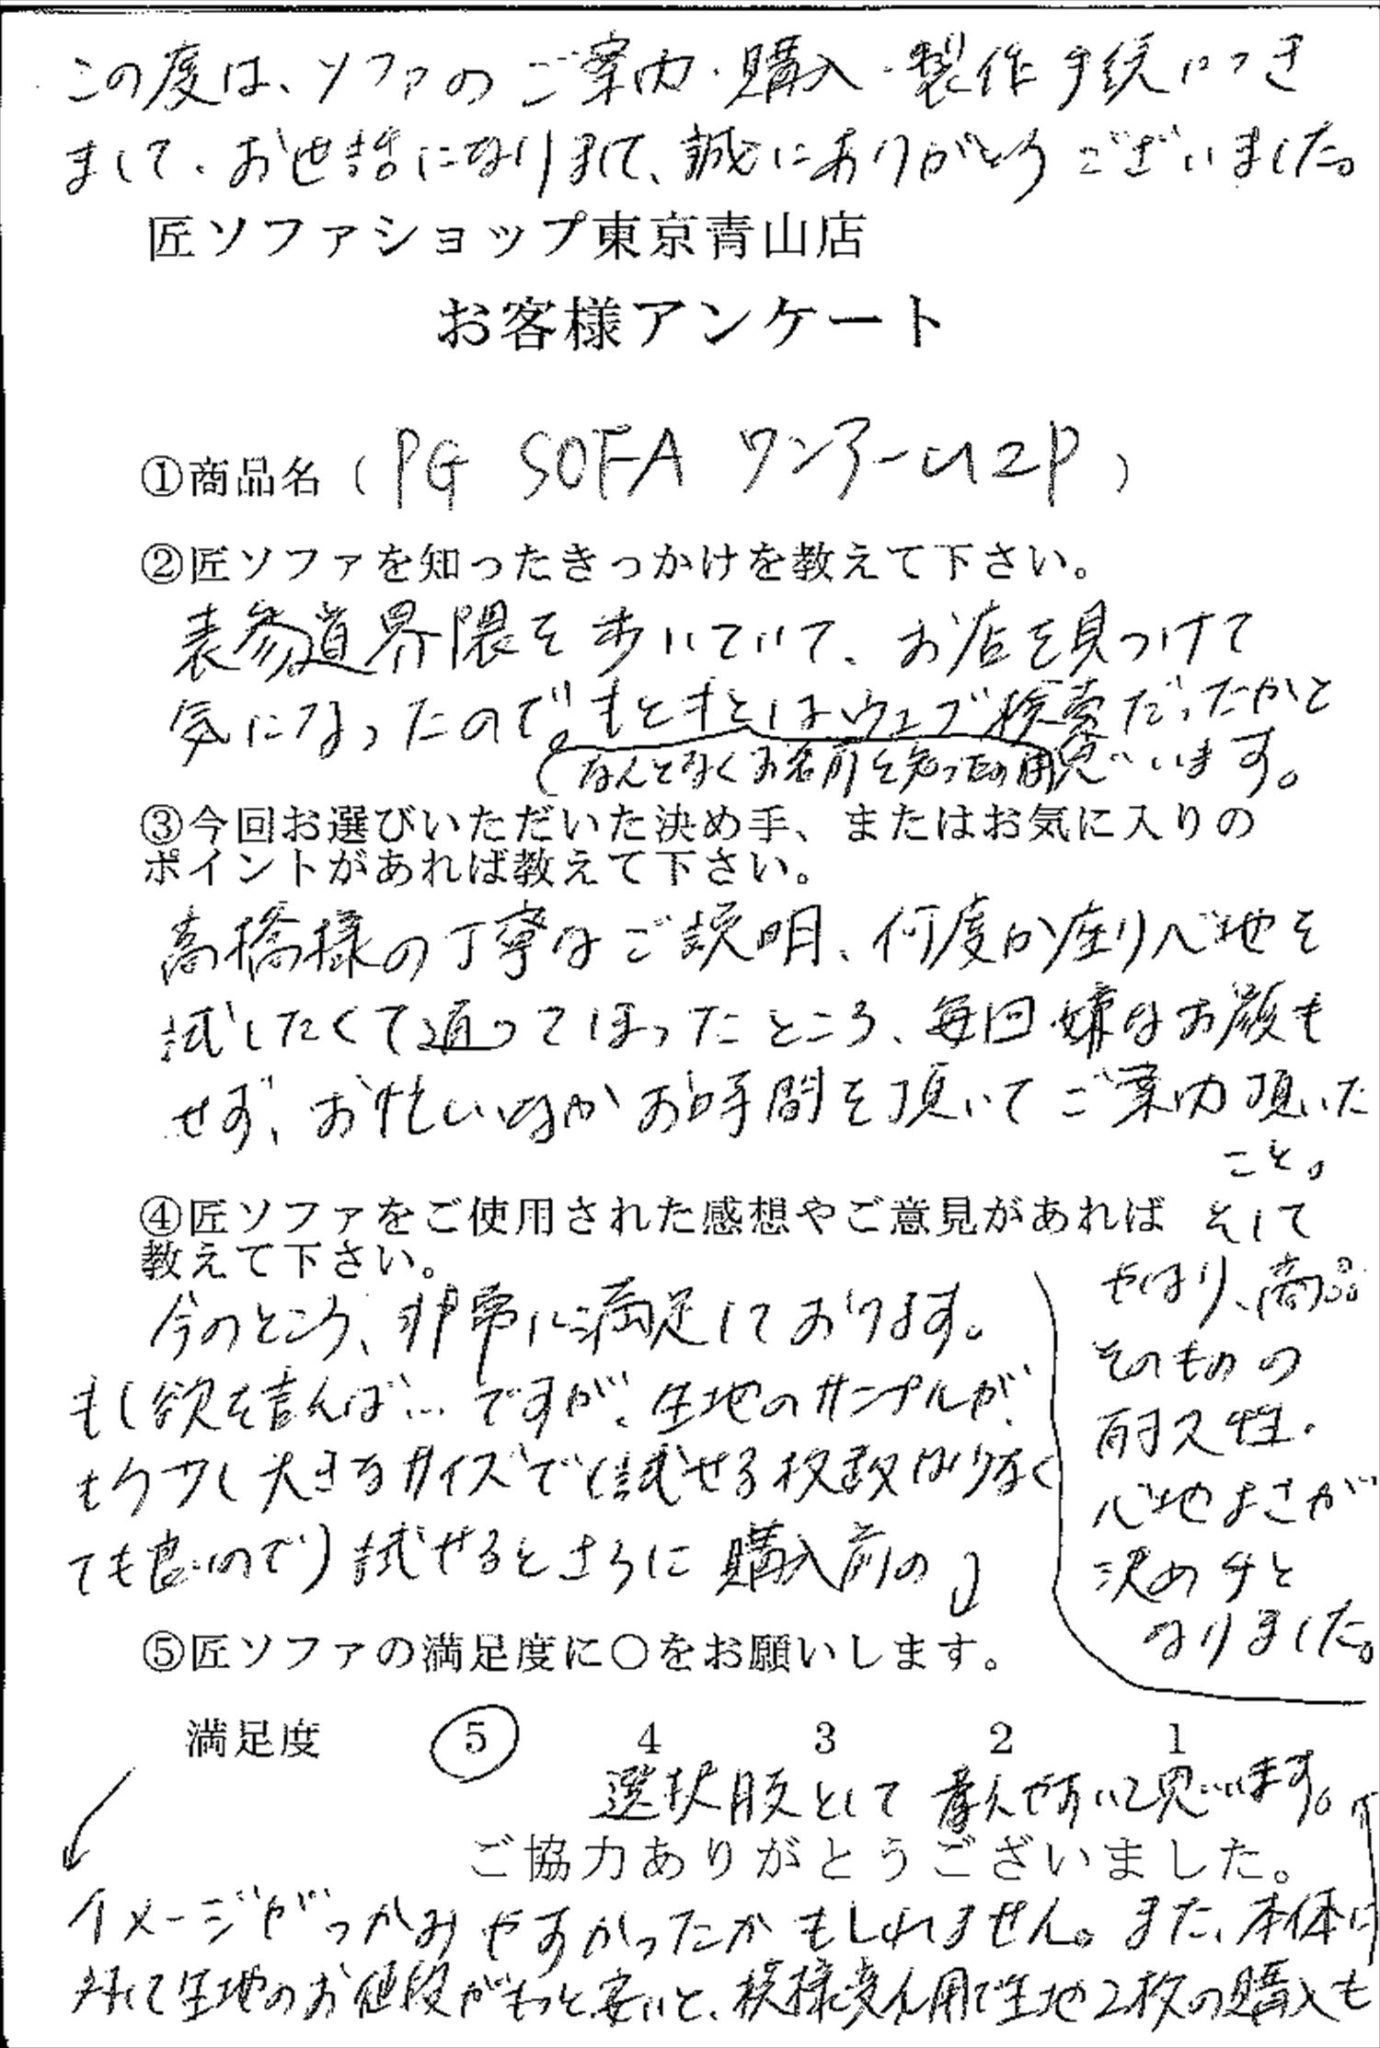 この度は、ソファのご案内・購入・製作手続につき
まして、お世話になりまして、誠にありがとうございました。
匠ソファショップ東京青山店
お客様アンケート
①商品名（PG SOFA ワンアーム2P）
②匠ソファを知ったきっかけを教えて下さい。
表参道界隈を歩いていて、お店を見つけて
気になったので。もともとはウェブ検索だったかと
（なんとなくお名前を知ったの用思います。
③今回お選びいただいた決め手、またはお気に入りの
ポイントがあれば教えて下さい。
高橋様の丁寧なご説明、何度か座り心地を
試したくて通ってまったところ、毎回嫌なお顔も
せず、お忙しいなかお時間を頂いてご案内頂いた
こと。
そして
やはり、商品
そのものの
耐久性・
心地よさが
決め手と
なりました。
④匠ソファをご使用された感想やご意見があれば
教えて下さい。
今のところ、非常に満足しております。
もし欲を言えば…ですが、生地のサンプルが、
もう少し大きなサイズで（試せる枚数は少なく
ても良いので）試せるとさらに購入前の
⑤匠ソファの満足度に〇をお願いします。
満足度 5 4 3 2 1
イメージがつかみやすかったかもしれません。また、本体に
対して生地のお値段がもっと安いと、模様変え用で生地2枚の購入も
選択肢として考えやすいと思います。
ご協力ありがとうございました。